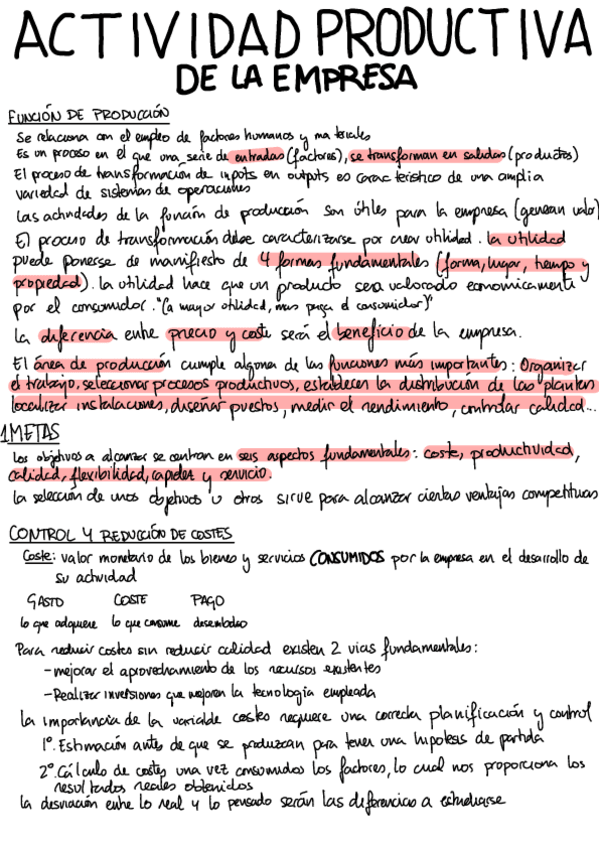 ACTIVIDAD PRODUCTIVA
DE LA EMPRESA
FUNCIÓN DE PRODUCCIÓN
Se relaciona con el empleo de factores humanos y materiales
Es un proceso en el que una serie de entradas (factores), se transforman en salidas (productos)
El proceso de transformación de inputs en outputs es característico de una amplia
variedad de sistemas de operaciones
Las actividades de la función de producción son útiles para la empresa (generan valor)
El proceso de transformación debe caracterizarse por crear utilidad. La utilidad
puede ponerse de manifiesto de 4 formas fundamentales (forma, lugar, tiempo y
propiedad). La utilidad hace que un producto sea valorado económicamente
por el consumidor. "(a mayor utilidad, más paga el consumidor)"
La diferencia entre precio y coste será el beneficio de la empresa.
El área de producción cumple alguna de las funciones más importantes: Organizar
el trabajo, seleccionar procesos productivos, establecen la distribución de las plantas
localizar instalaciones, diseñar puestos, medir el rendimiento, controlar calidad...
1.METAS
Los objetivos a alcanzar se centran en seis aspectos fundamentales: coste, productividad,
calidad, flexibilidad, rapidez y servicio.
La selección de unos objetivos u otros sirve para alcanzar ciertas ventajas competitivas
CONTROL Y REDUCCIÓN DE COSTES
Coste: valor monetario de los bienes y servicios CONSUMIDOS por la empresa en el desarrollo de
su actividad
GASTO COSTE PAGO
lo que adquiere lo que consume desembolso
Para reducir costes sin reducir calidad existen 2 vías fundamentales:
- mejorar el aprovechamiento de los recursos existentes
- Realizar inversiones que mejoren la tecnología empleada
La importancia de la variable costes requiere una correcta planificación y control
1º. Estimación antes de que se produzcan para tener una hipótesis de partida
2º. Cálculo de costes una vez consumidos los factores, lo cual nos proporciona los
resultados reales obtenidos
La desviación entre lo real y lo pensado serán las diferencias a estudiarse